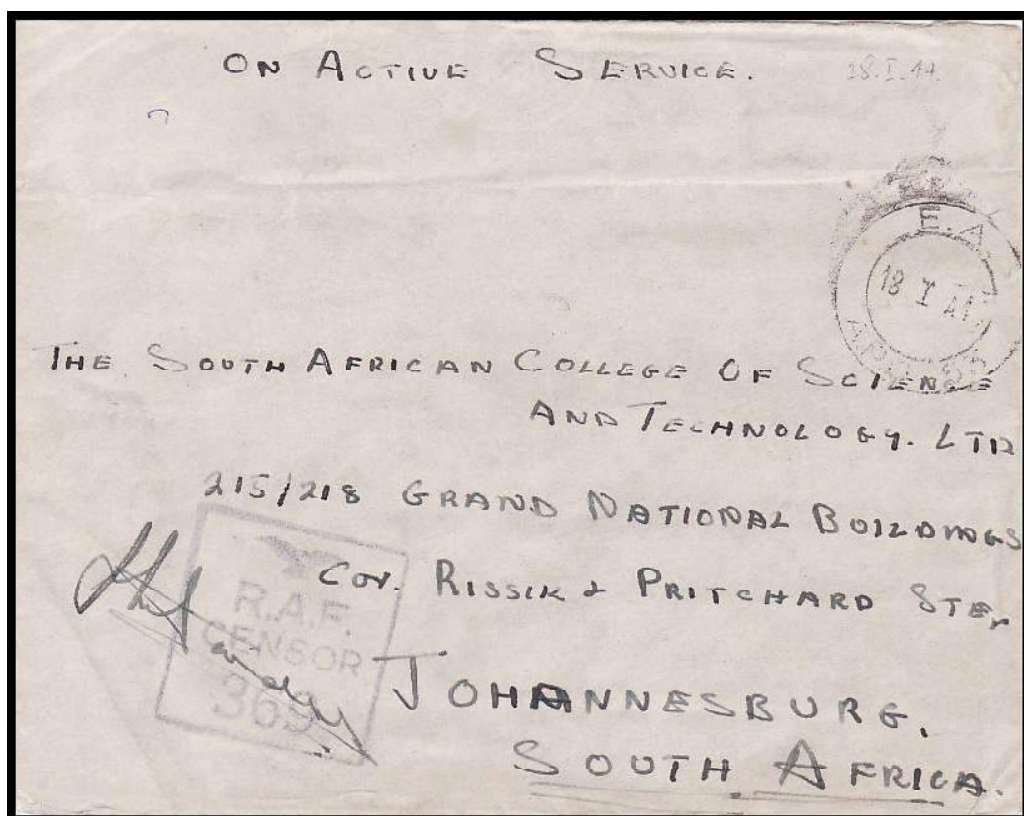 ON ACTIVE SERVICE.
18.I.44.
E.A.
18 I
THE SOUTH AFRICAN COLLEGE OF SCIENCE
AND TECHNOLOGY. LTD
215/218 GRAND NATIONAL BUILDINGS
Cor. RISSIK & PRITCHARD STS,
R.A.F.
CENSOR
369
JOHANNESBURG,
SOUTH AFRICA.